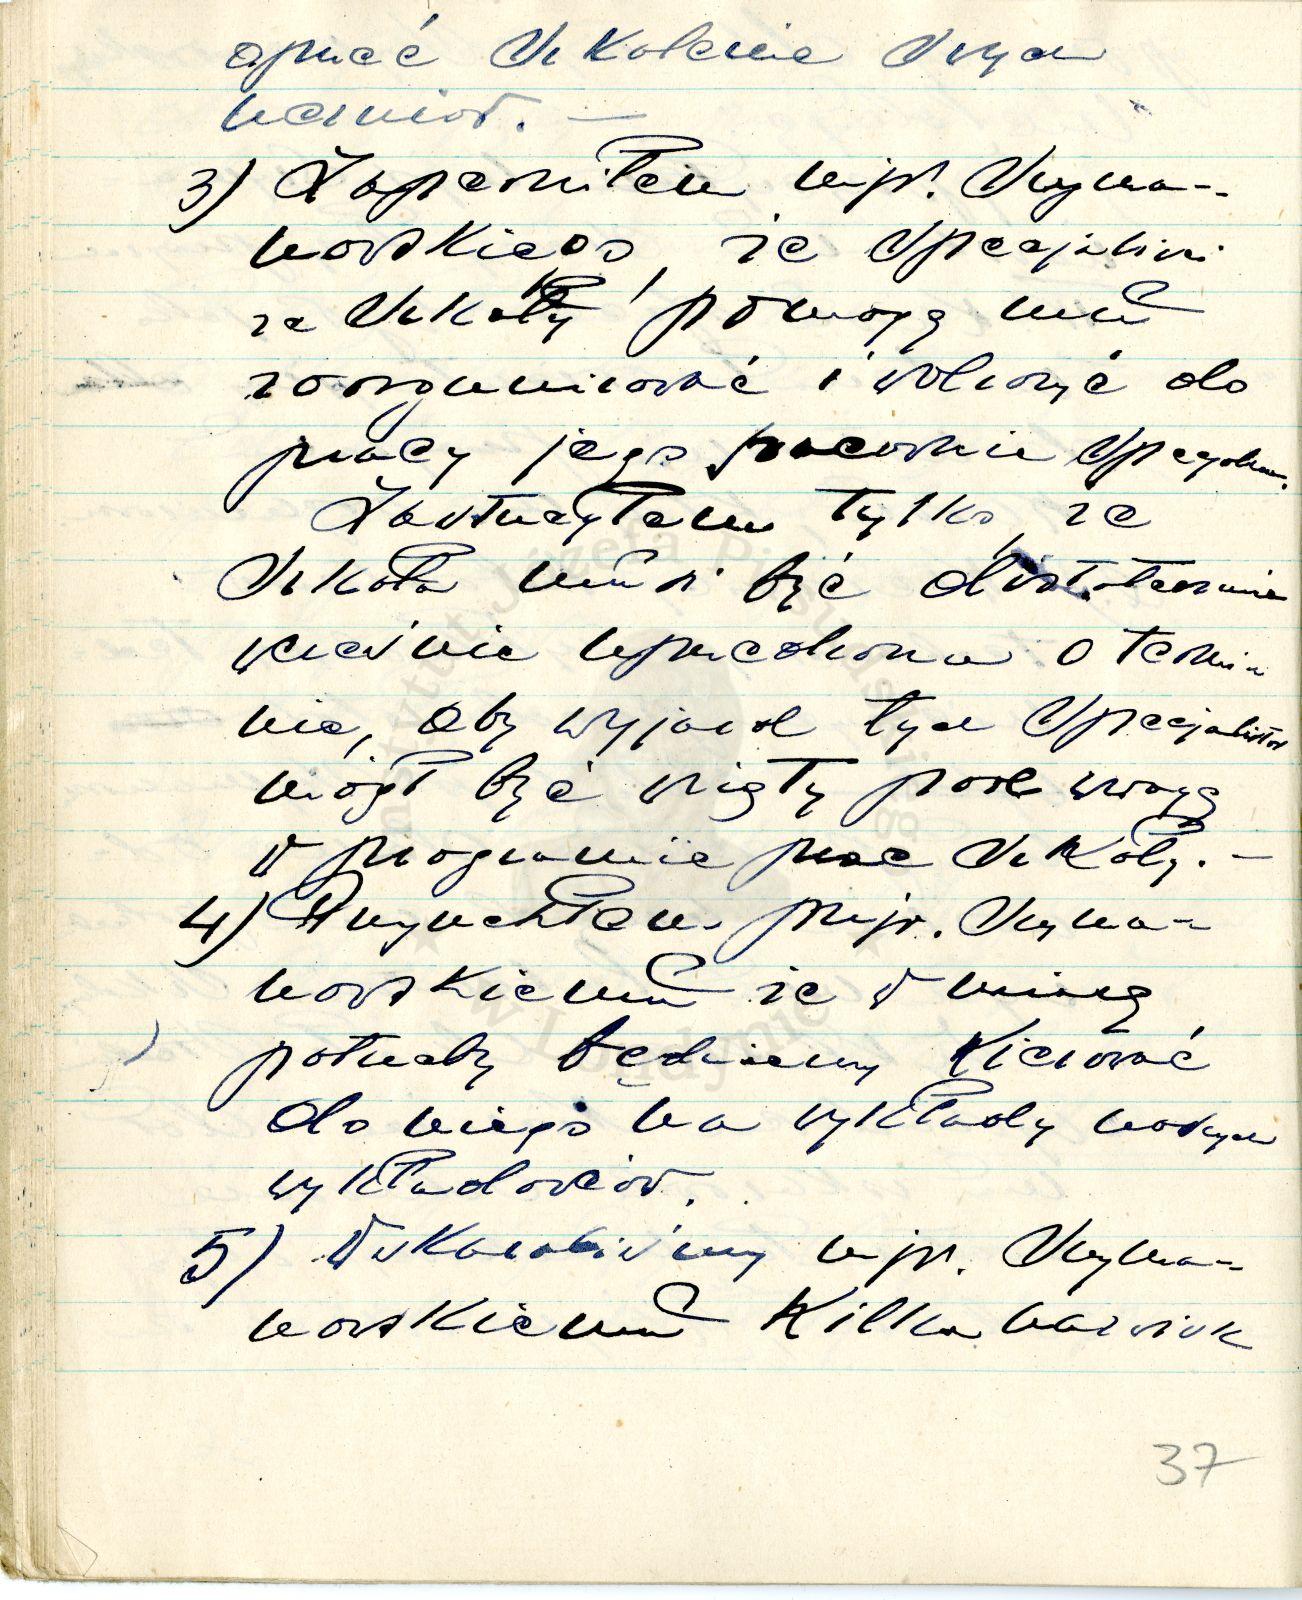 oprzeć szkolenie swych
uczniów. —
3) Zapewniłem mjr. Szyma-
nowskiego, że specjaliści
ze Szkoły pomogą mu
zorganizować i wdrożyć do
pracy jego pracownie specjaln.
Zastrzegłem tylko, że
Szkoła musi być dostatecznie
wcześnie uprzedzona o termi-
nie, aby wyjazd tych specjalistów
mógł być wzięty pod uwagę
w programie prac Szkoły. —
4) Przyrzekłem mjr. Szyma-
nowskiemu że w miarę
potrzeby będziemy kierować
do niego na wykłady naszych
wykładowców.
5) Wskazaliśmy mjr. Szyma-
nowskiemu kilka nazwisk
37
Instytut Józefa Piłsudskiego
w Londynie